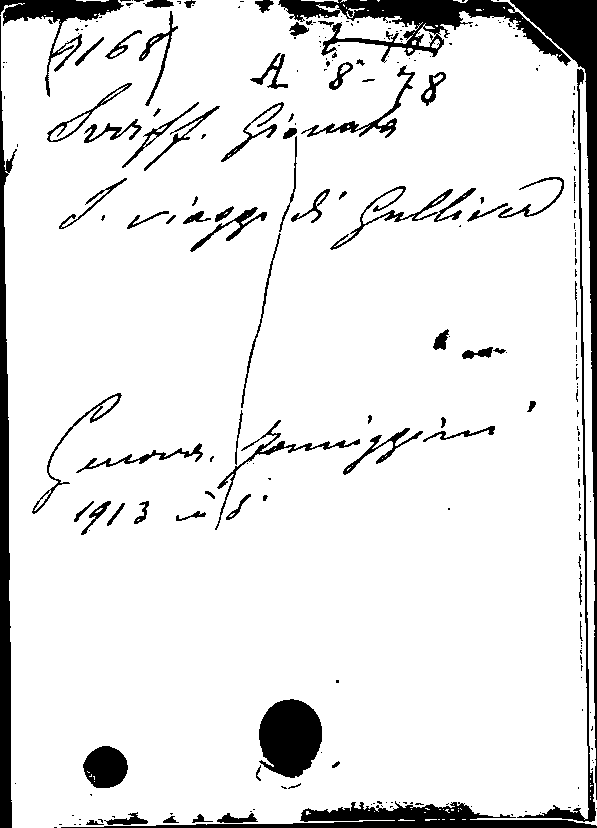 (9168)
A 8-78
Swift. Gionata
I. viaggi di Gulliver
Genova. Formiggini
1913 in 8.